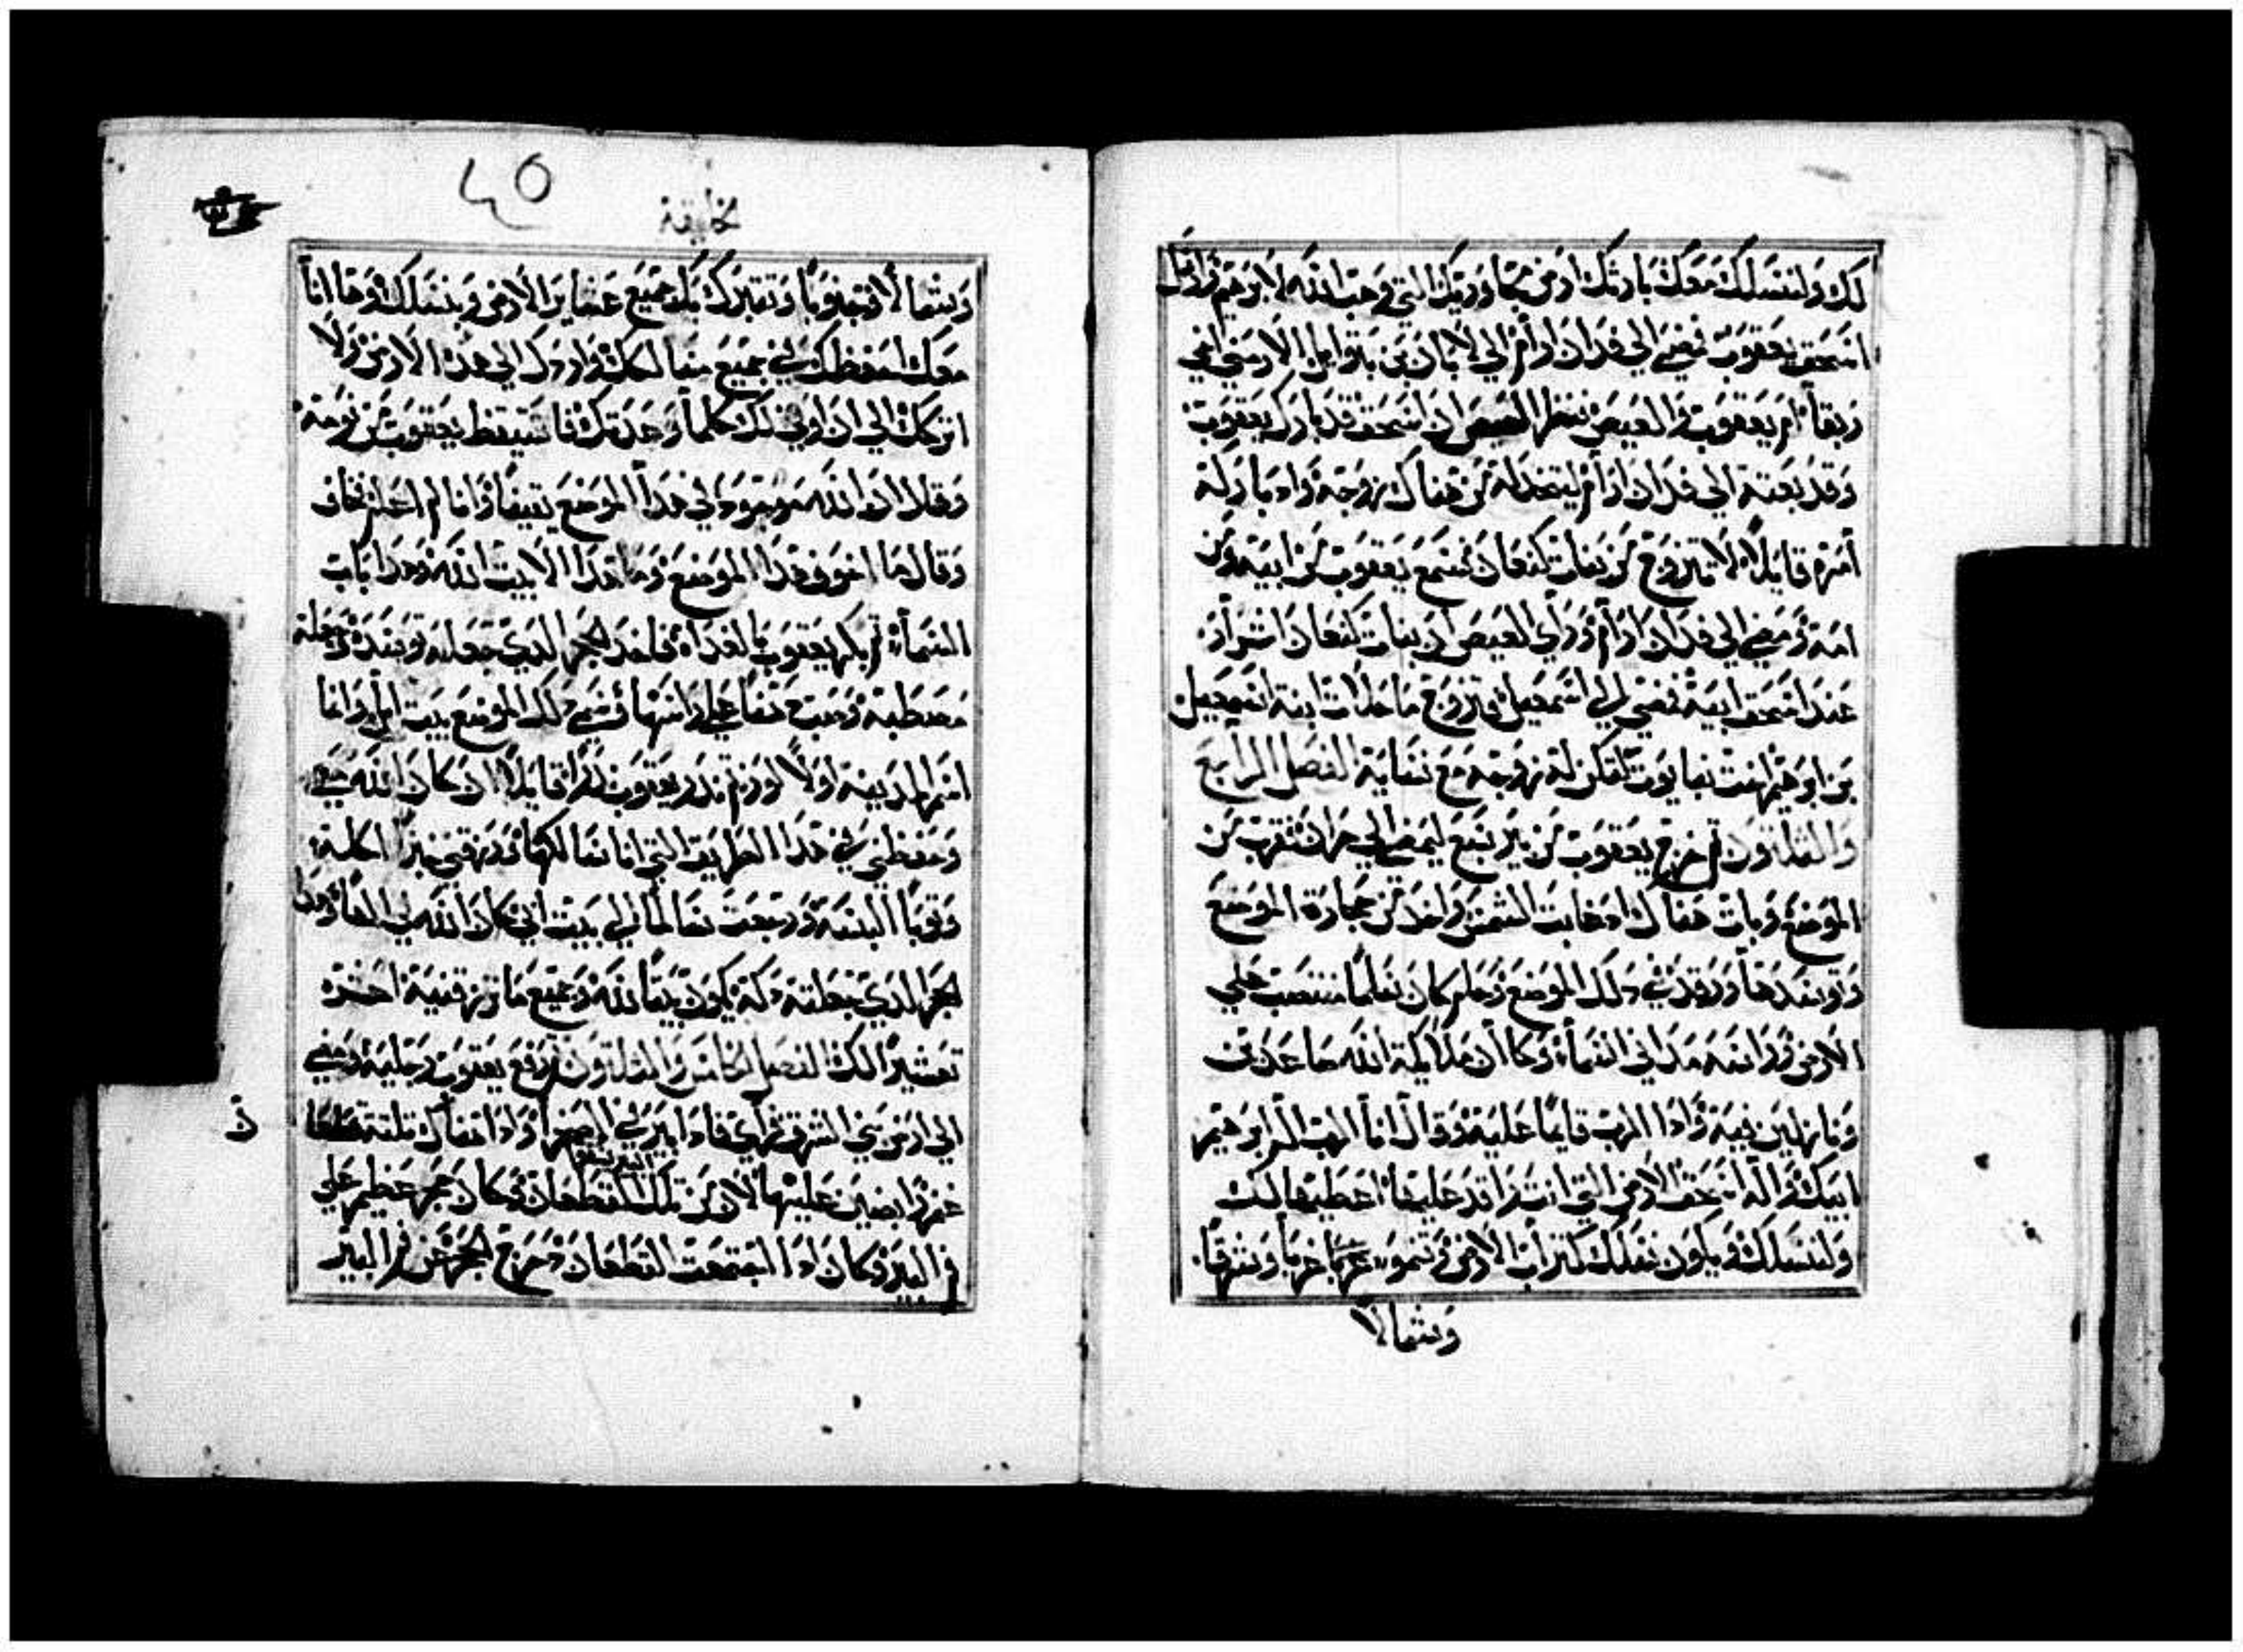 لك ولنسلك معك بارثك ارض مجاورتك التي وهب الله لابرهيم وارسل
اسحق يعقوب فمضي الي فدان ارام الي لابان بن بتوايل الارمني اخي
ربقا ام يعقوب والعيص فنظر العيص ان اسحق قد بارك يعقوب
وقد بعته الي فدان ارام ليتخد له من هناك زوجة واد باركه
امره قايلا لا تتزوج من بنات كنعان فسمع يعقوب من ابيه ومن
امه ومضي الي فدان ارام وراي العيص ان بنات كنعان اشرار
عند اسحق ابيه فمضي الي اسمعيل وتزوج ماحلات ابنة اسمعيل
بن ابرهيم اخت نبايوت لتكن له زوجه مع نسايه الفصل الرابع
والثلاثون ثم خرج يعقوب من بير سبع ليمضي الي حران فتقرب من
الموضع وبات هناك اد غابت الشمس واخد من حجارة الموضع
وتوسدها ورقد في دلك الموضع وحلم كان سلما منتصب علي
الارض وراسه مدا في السماء وكا ان ملايكة الله صاعدين
ونازلين فيه وادا الرب قايما عليه وقال انا الرب اله ابرهيم
ابيك واله اسحق الارض التي انت راقد عليها اعطيها لك
ولنسلك ويكون نسلك كتراب الارض وتنمو غربا وشرقا
وشمالا
خليقة
٤٥
وشمالا وجنوبا وتتبرك بك جميع عشاير الارض وبنسلك وها انا
معك احفظك في جميع مسالكك واردك الي هده الارض ولا
اتركك الي ان اوفي لك كلما وعدتك فاستيقظ يعقوب من نومه
وقال ان الله موجود في هدا الموضع يقينا وانا لم اعلم فخاف
وقال ما اخوف هدا الموضع وما هدا الا بيت الله وهدا باب
السماء ثم بكر يعقوب بالغداه فاخد الحجر الدي جعله توسده وجعله
مصطبه وصب دهنا علي راسها وسمي دلك الموضع بيت ايل وانما
اسم المدينه اولا لوز ثم ندر يعقوب ندرا قايلا ان كان الله معي
وحفظني في هدا الطريق التي انا سالكها ورزقني خبزا اكله
وثوبا البسه ورجعت سالما الي بيت ابي كان الله لي الها وهدا
الحجر الدي جعلته دكة يكون بيتا لله وجميع ما ترزقنيه اعشره
تعشيرا لك الفصل الخامس والثلاثون ثم رفع يعقوب رجليه ومضي
الي ارض بني الشرق ثم راي فادا بير في الصحرا وادا هناك ثلثة قطعان
غنم رابضين عليها لان من تلك البير تسقا القطعان وكان حجر عظيم علي
فم البير وكان ادا اجتمعت القطعان دحرج الحجر عن فم البير